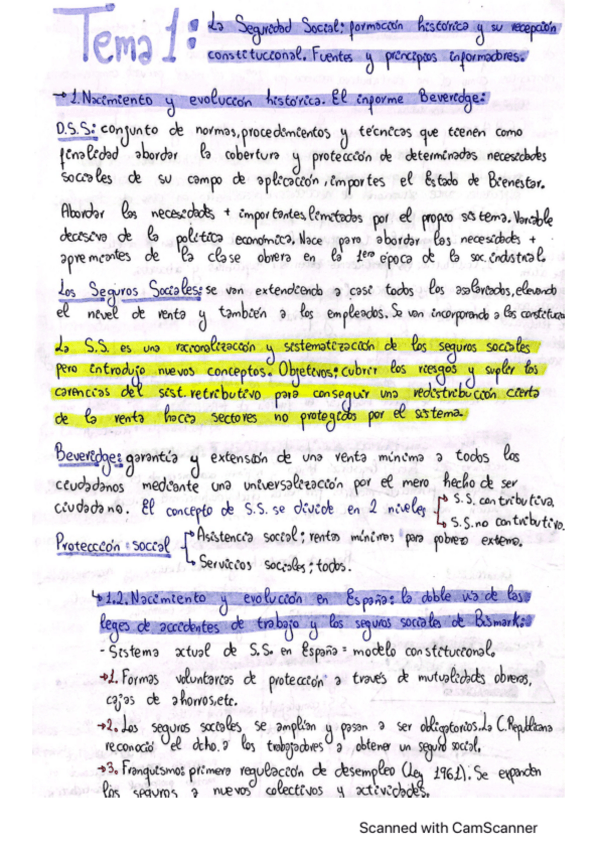 Tema 1: La Seguridad Social: formación histórica y su recepción
constitucional. Fuentes y principios informadores.
→ 1. Nacimiento y evolución histórica. El informe Beveridge:
D.S.S: conjunto de normas, procedimientos y técnicas que tienen como
finalidad abordar la cobertura y protección de determinadas necesidades
sociales de su campo de aplicación, importes el Estado de Bienestar.
Abordar las necesidades + importantes, limitadas por el propio sistema. Variable
decisiva de la política económica. Nace para abordar las necesidades +
apremiantes de la clase obrera en la 1era época de la soc. industrial.
Los Seguros Sociales: se van extendiendo a casi todos los asalariados, elevando
el nivel de renta y también a los empleados. Se van incorporando a las constitucion
La S.S. es una racionalización y sistematización de los seguros sociales
pero introdujo nuevos conceptos. Objetivos: cubrir los riesgos y suplir las
carencias del sist. retributivo para conseguir una redistribución cierta
de la renta hacia sectores no protegidos por el sistema.
Beveridge: garantía y extensión de una renta mínima a todos los
ciudadanos mediante una universalización por el mero hecho de ser
ciudadano. El concepto de S.S. se divide en 2 niveles → S.S. contributiva.
↳ S.S. no contributiva.
Protección social → Asistencia social: rentas mínimas para pobreza extrema.
↳ Servicios sociales: todos.
↳ 1.2. Nacimiento y evolución en España: la doble vía de las
leyes de accidentes de trabajo y los seguros sociales de Bismark:
- Sistema actual de S.S. en España = modelo constitucional.
→ 1. Formas voluntarias de protección a través de mutualidades obreras,
cajas de ahorros, etc.
→ 2. Los seguros sociales se amplían y pasan a ser obligatorios. La C. Republicana
reconoció el dcho. a los trabajadores a obtener un seguro social.
→ 3. Franquismo: primera regulación de desempleo (Ley 1961). Se expanden
los seguros a nuevos colectivos y actividades.
Scanned with CamScanner